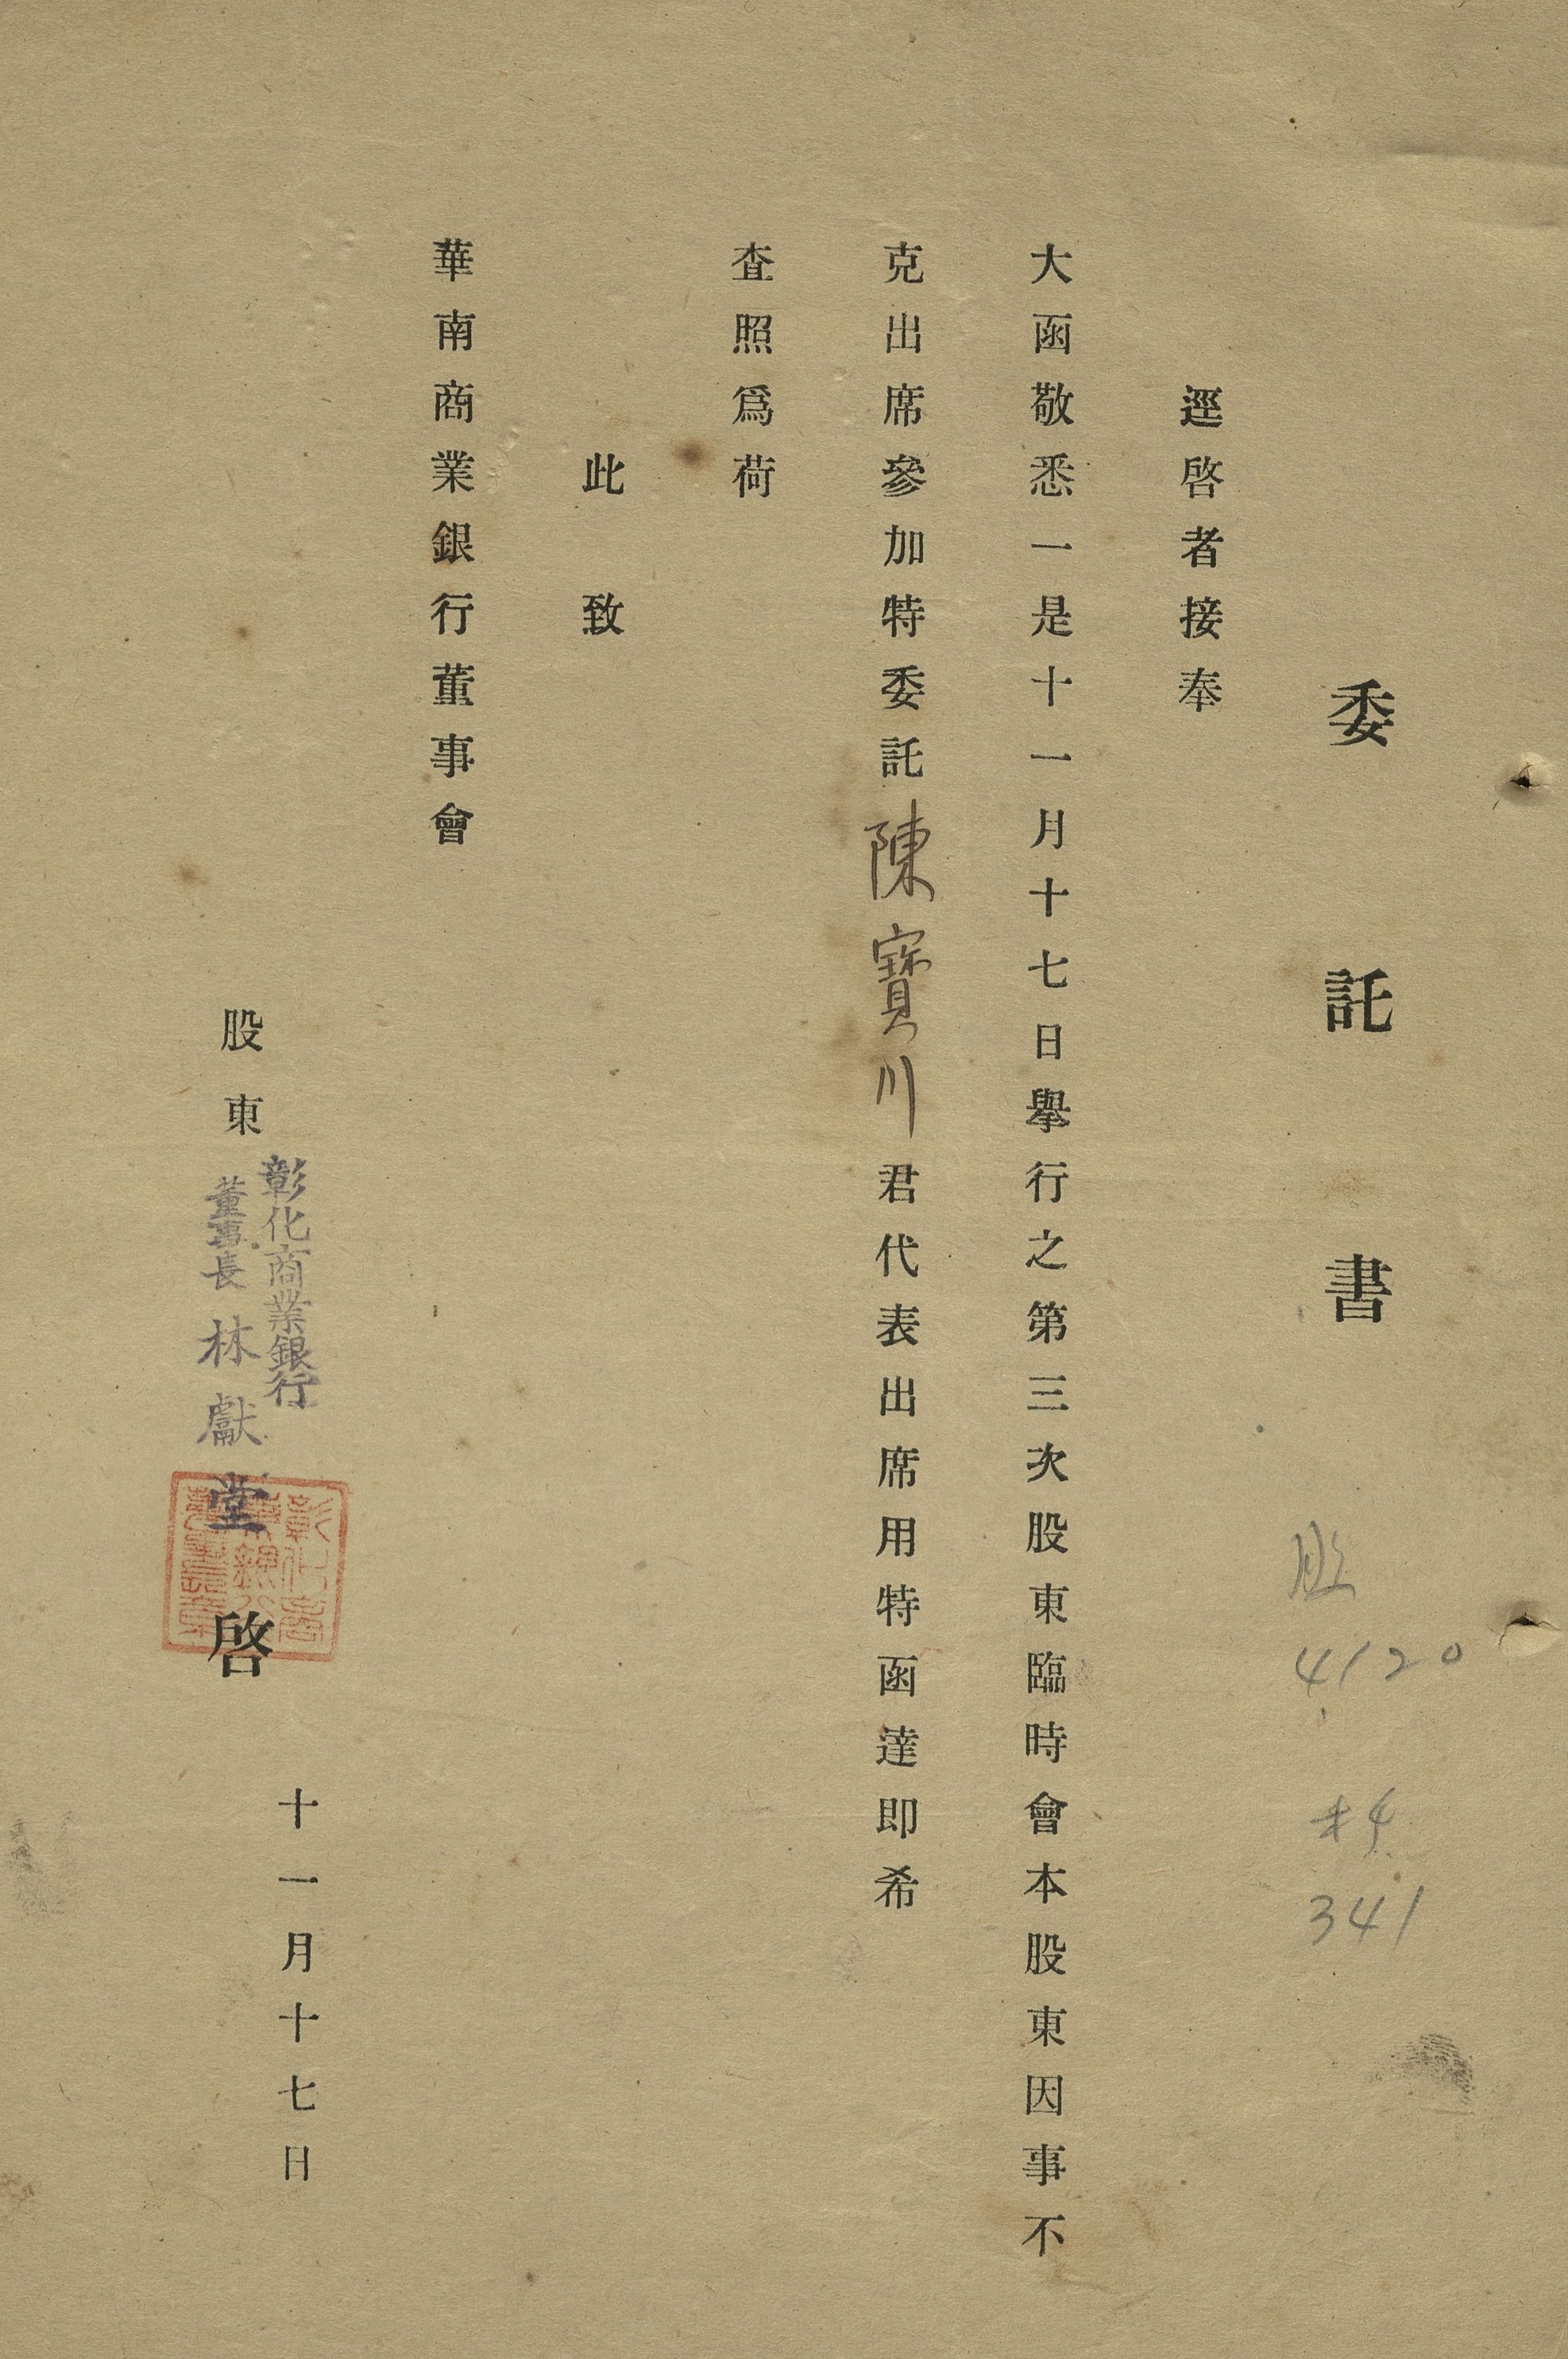 委託書
逕啓者接奉
大函敬悉一是十一月十七日舉行之第三次股東臨時會本股東因事不
克出席參加特委託陳寶川君代表出席用特函達即希
查照爲荷
此致
華南商業銀行董事會
股東
彰化商業銀行
董事長林獻堂啓
十一月十七日
4120
341